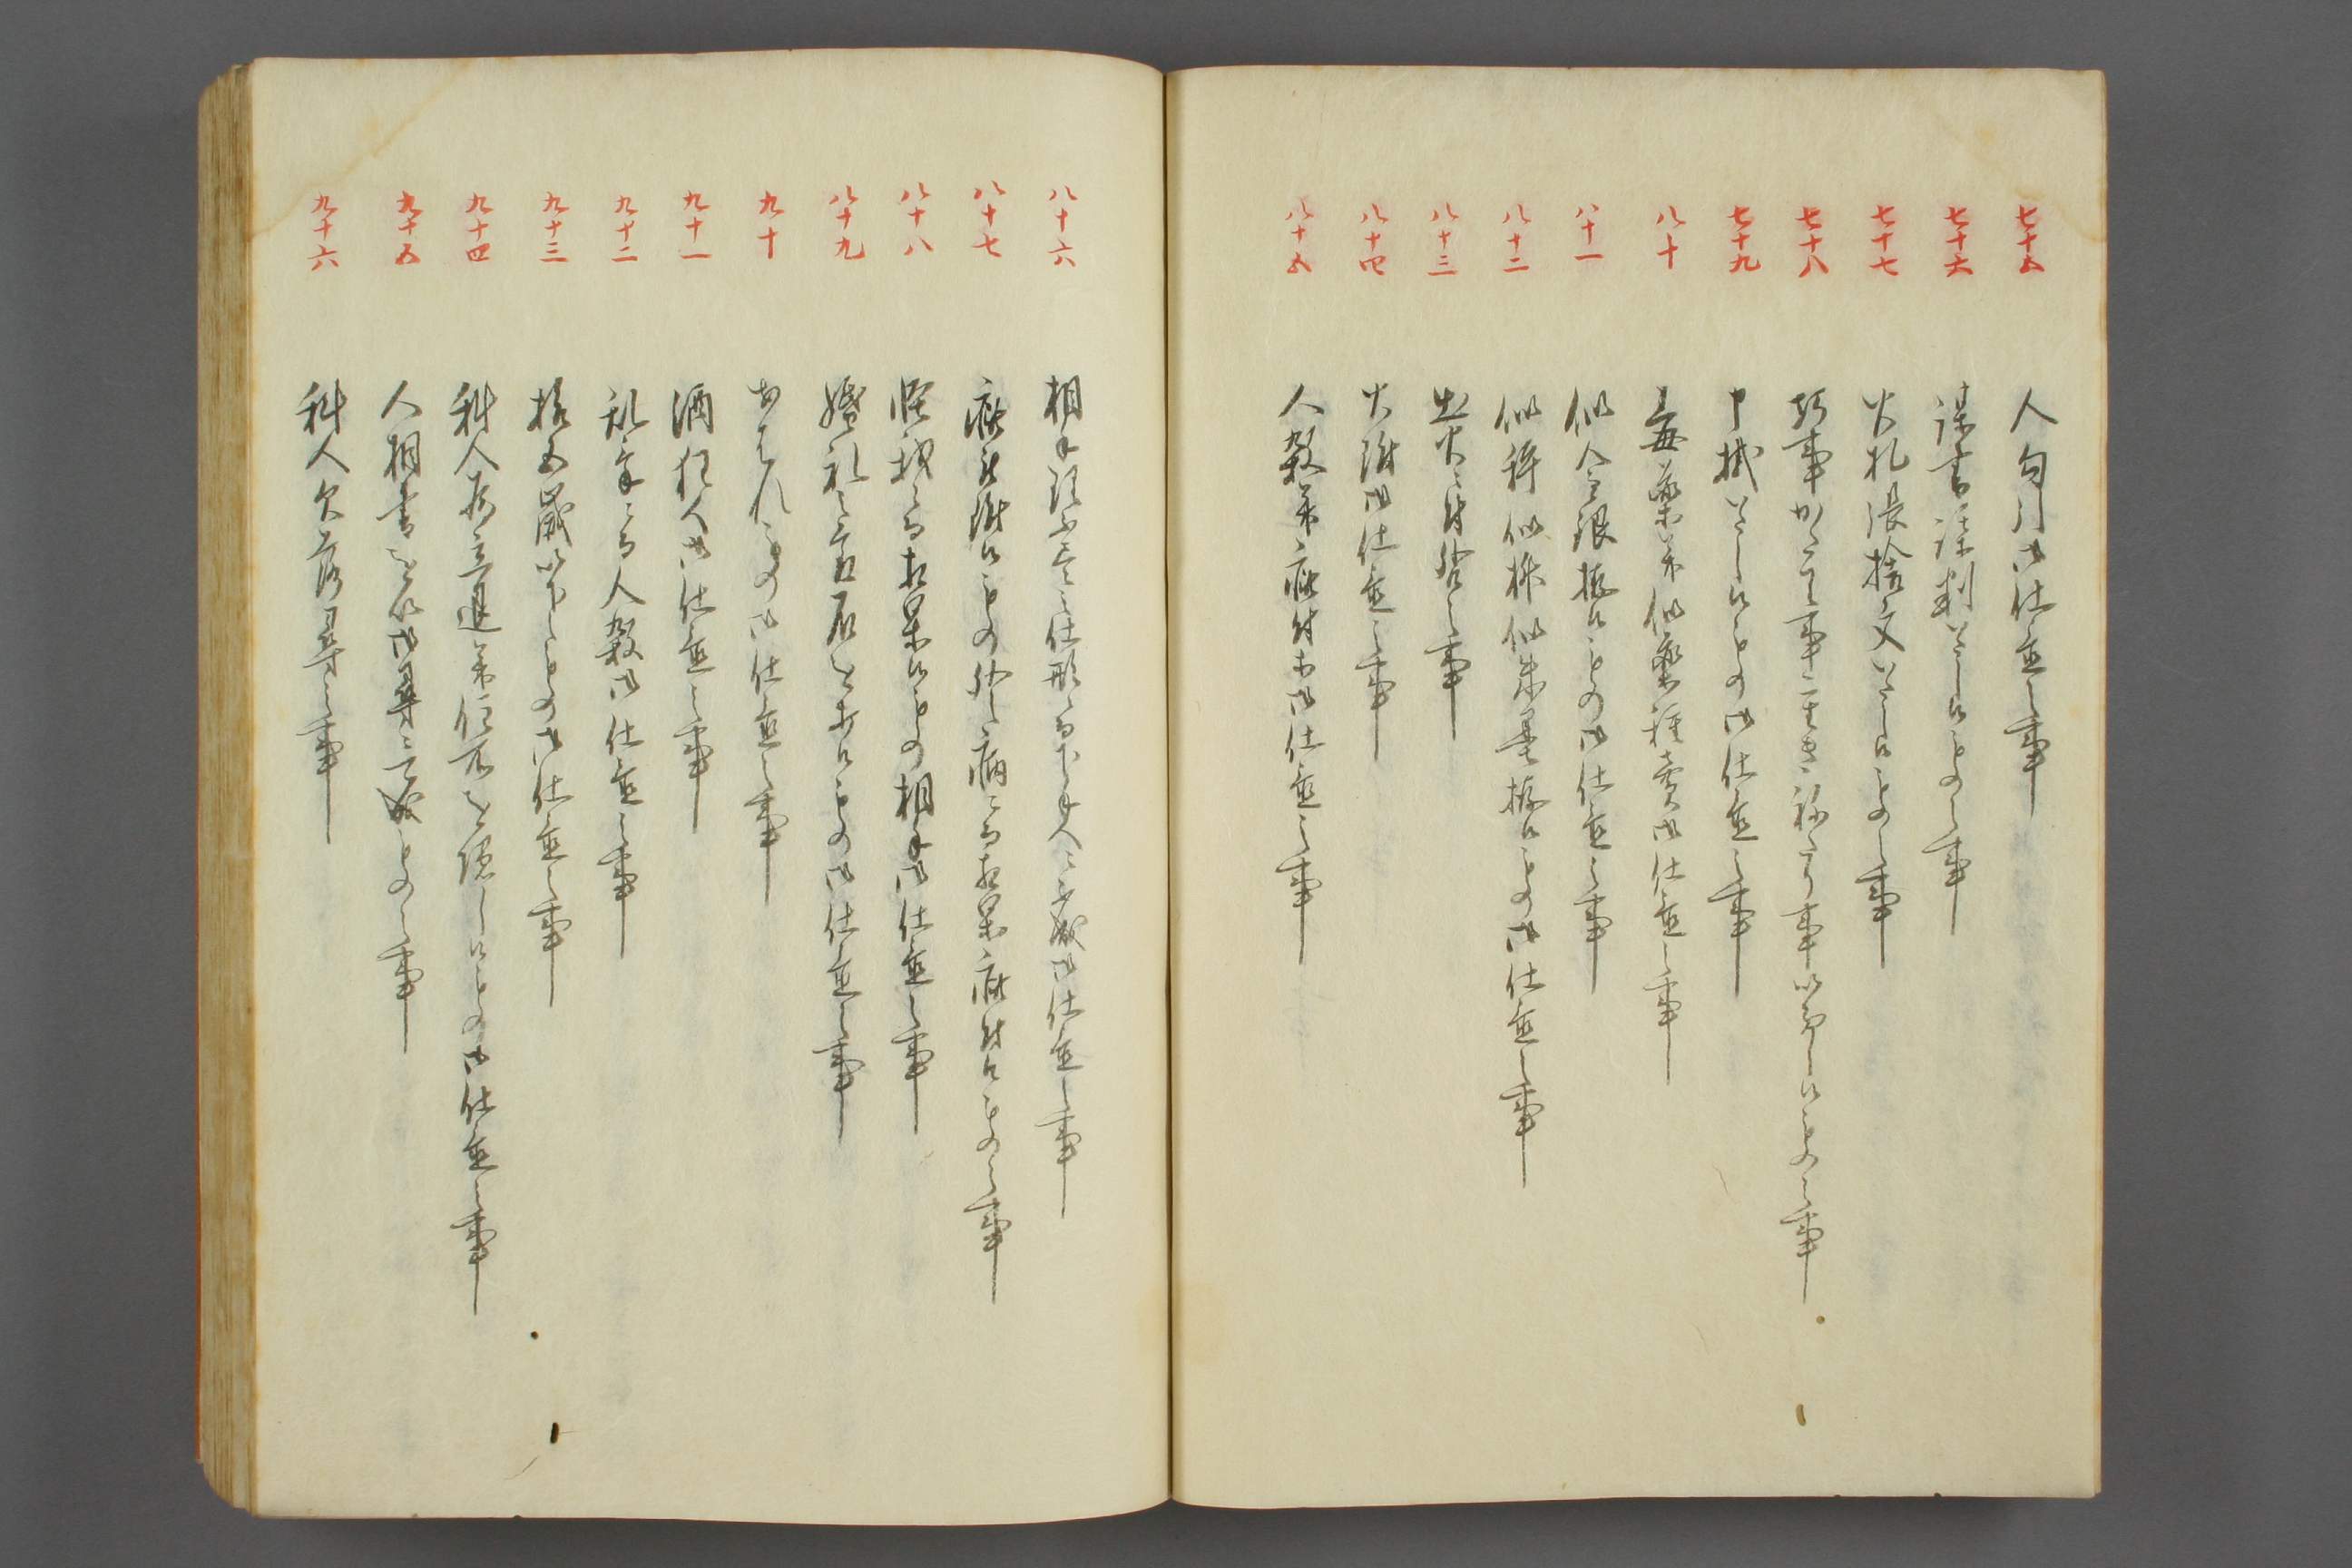 七十五 人勾引御仕置之事
七十六 謀書謀判いたし候もの之事
七十七 火札張捨文いたし候もの之事
七十八 巧事かたり事重きねたり事いたし候もの之事
七十九 申掛いたし候もの御仕置之事
八十 毒薬并似薬種売御仕置之事
八十一 似金銀拵候もの御仕置之事
八十二 似秤似桝似朱墨拵候もの御仕置之事
八十三 出火ニ付咎之事
八十四 火附御仕置之事
八十五 人殺并疵付等御仕置之事
八十六 相手理不尽之仕形ニ而下手人ニ不成御仕置之事
八十七 疵被附候もの外之病ニ而相果疵付候もの之事
八十八 怪我ニ而相果候もの相手御仕置之事
八十九 婚礼之節石を打候もの御仕置之事
九十 あはれもの御仕置之事
九十一 酒狂人御仕置之事
九十二 乱気ニ而人殺御仕置之事
九十三 拾五歳以下之もの御仕置之事
九十四 科人為立退并住所を隠し候もの御仕置之事
九十五 人相書を以御尋ニ可成もの之事
九十六 科人欠落尋之事